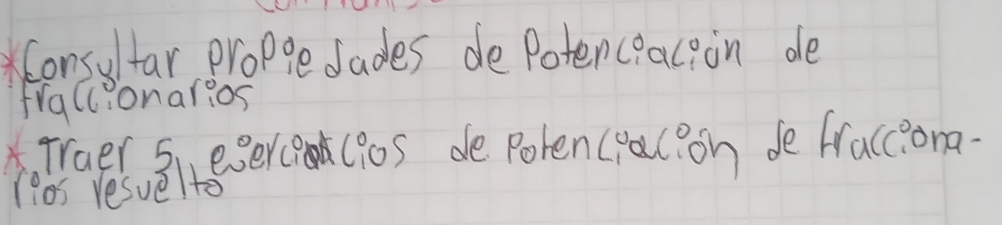 *Consultar propiedades de Potenciación de
fraccionarios
* Traer 5 ejercicios de Potenciación de fracciona-
rios resuelto